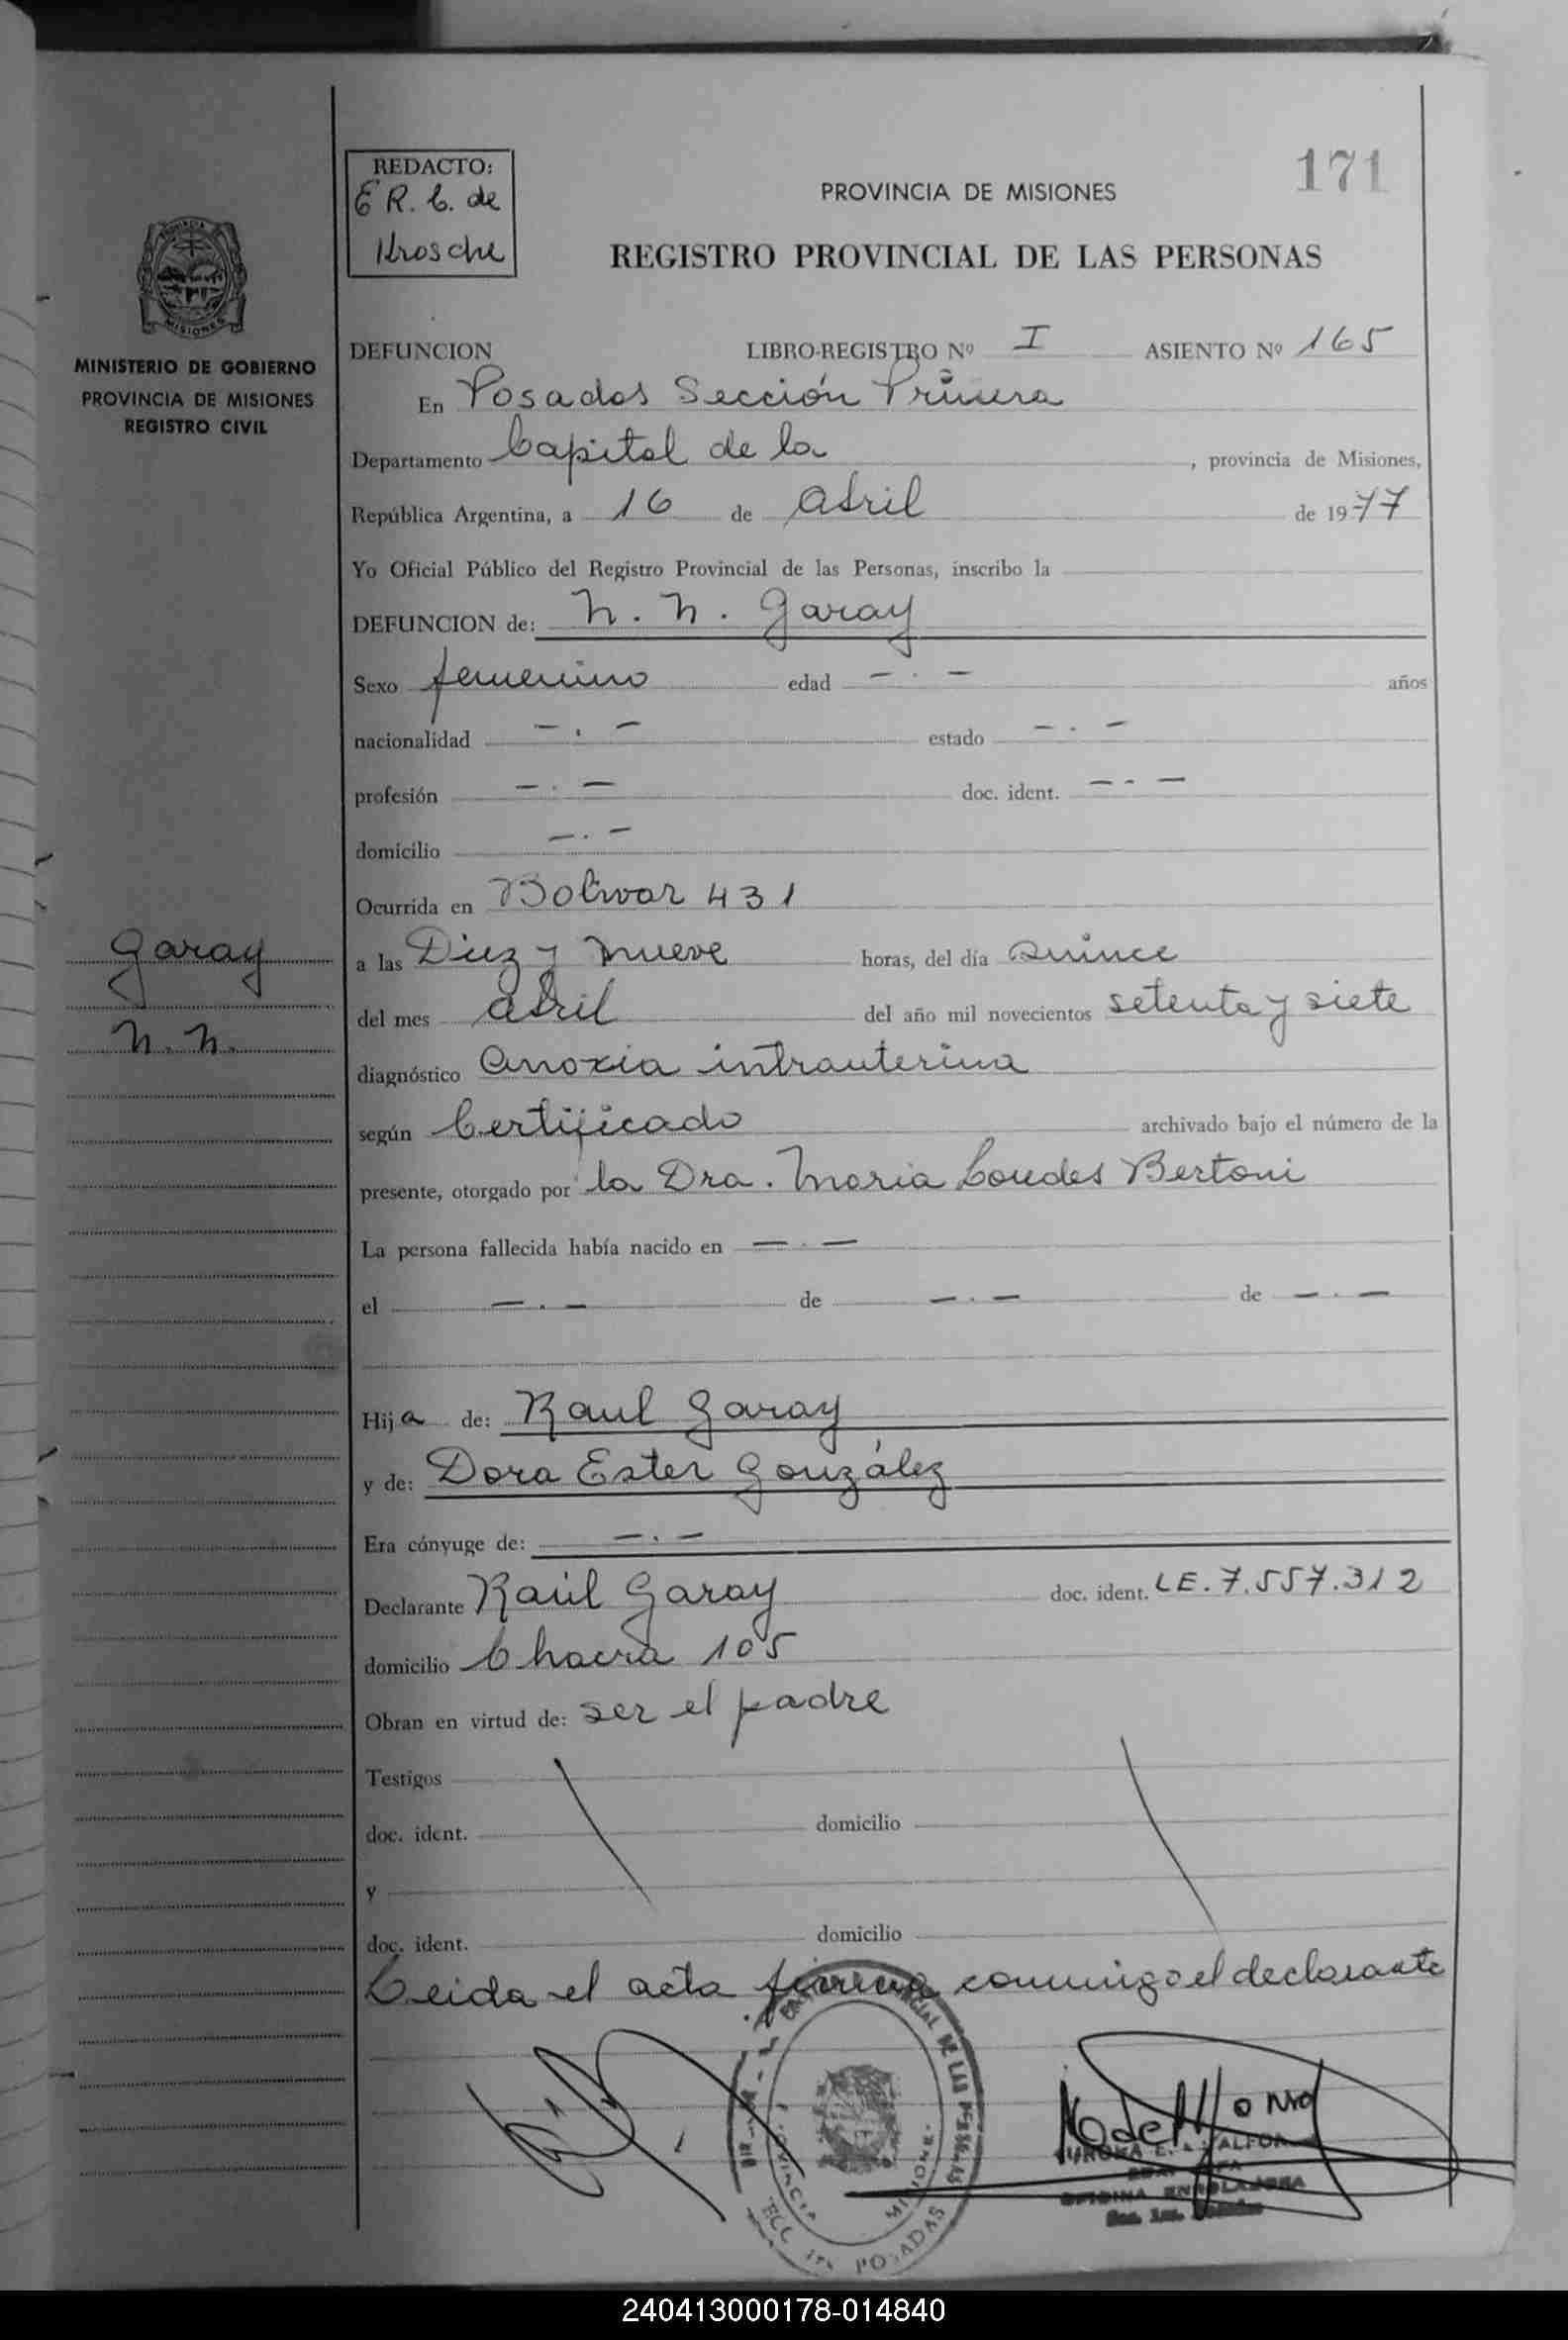 171
REDACTO:
E R. C. de
Krosche
PROVINCIA DE MISIONES
REGISTRO PROVINCIAL DE LAS PERSONAS
MINISTERIO DE GOBIERNO
PROVINCIA DE MISIONES
REGISTRO CIVIL
DEFUNCION LIBRO-REGISTRO Nº I ASIENTO Nº 165
En Posadas Sección Primera
Departamento Capital de la , provincia de Misiones,
República Argentina, a 16 de Abril de 1977
Yo Oficial Público del Registro Provincial de las Personas, inscribo la
DEFUNCION de: N. N. Garay
Sexo femenino edad - . - años
nacionalidad - . - estado - . -
profesión - . - doc. ident. - . -
domicilio - . -
Ocurrida en Bolivar 431
Garay
N. N.
a las Diez y nueve horas, del día Quince
del mes abril del año mil novecientos setenta y siete
diagnóstico Anoxia intrauterina
según Certificado archivado bajo el número de la
presente, otorgado por la Dra. Maria Loudes Bertoni
La persona fallecida había nacido en - . -
el - . - de - . - de - . -
Hija de: Raul Garay
y de: Dora Ester González
Era cónyuge de: - . -
Declarante Raúl Garay doc. ident. LE. 7.557.312
domicilio Chacra 105
Obran en virtud de: ser el padre
Testigos
doc. ident. domicilio
y
doc. ident. domicilio
Leida el acta firma conmigo el declarante
PROVINCIA MISIONES
POSADAS
DE LAS PERSONAS
240413000178-014840